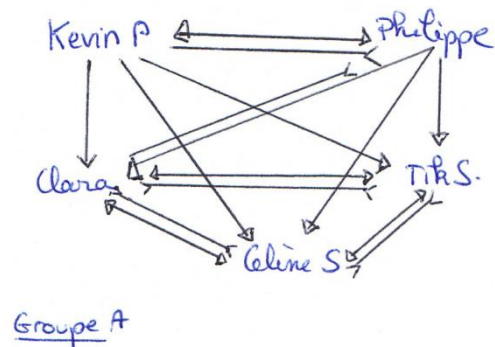 Kevin P Philippe
Clara TikS.
Céline S
Groupe A